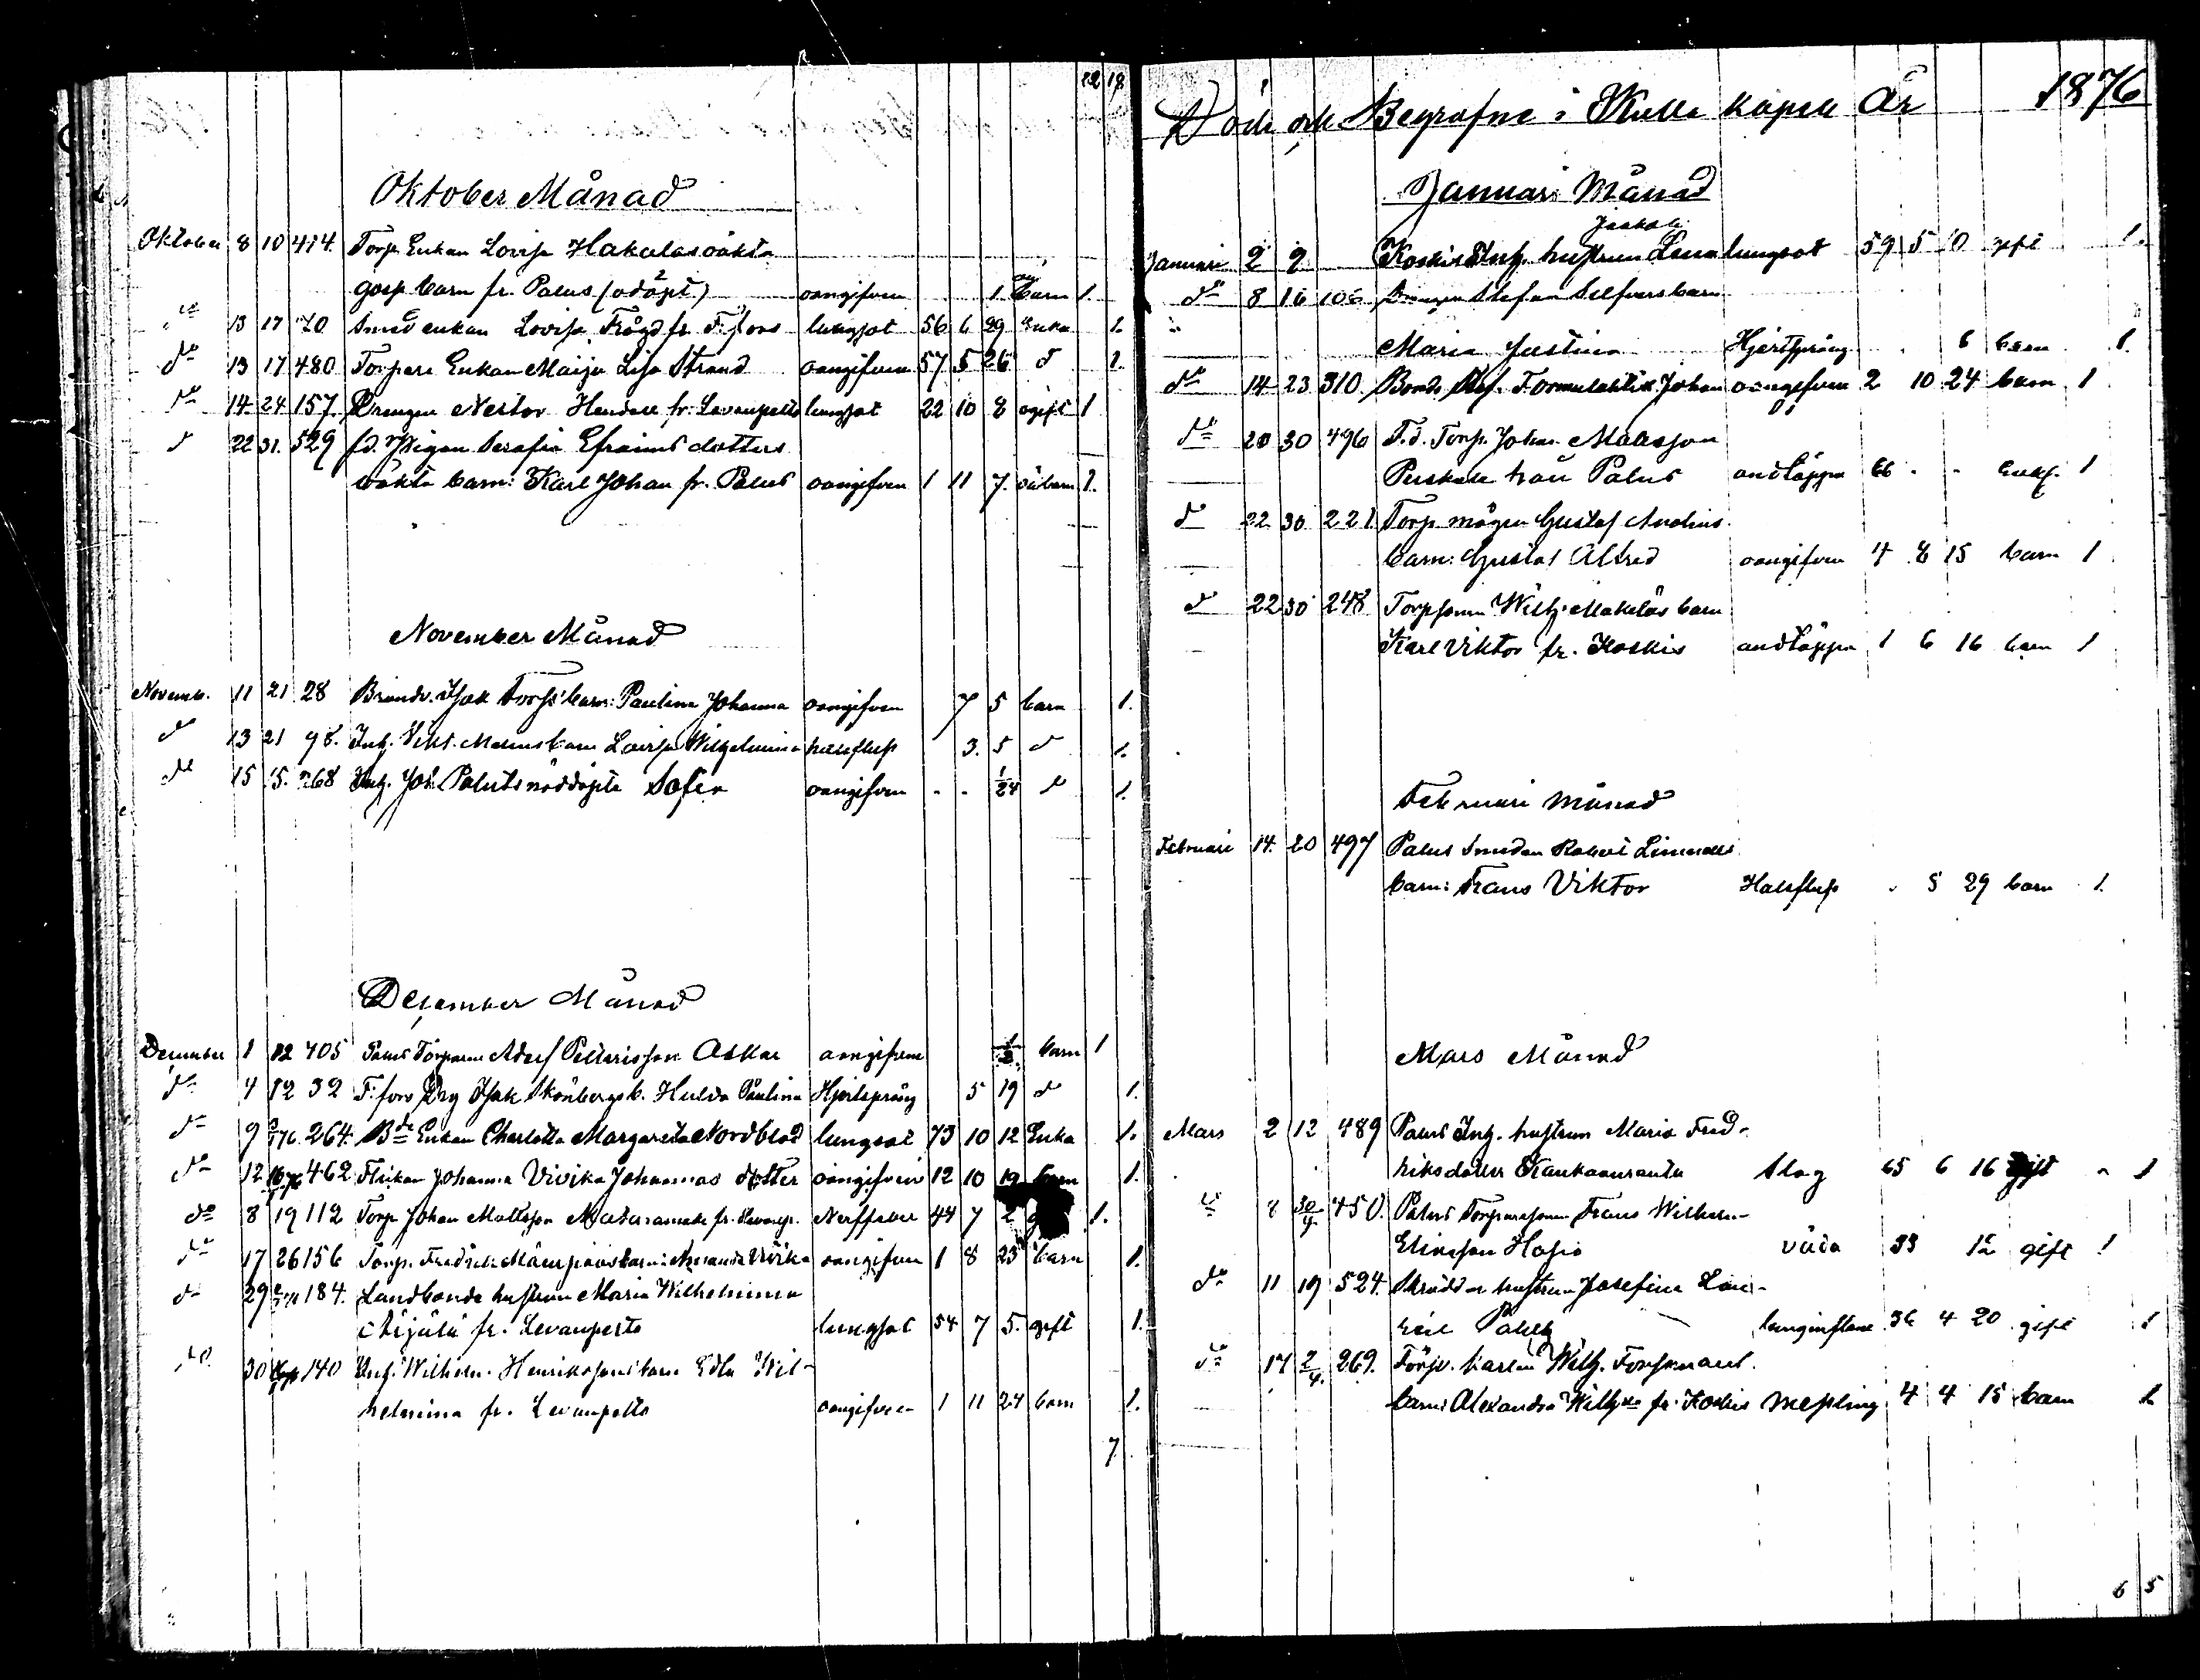 22 18
Oktober Månad
Oktober 8 10 474. Torp. Enkan Lovisa Hakalas oäkta
goss barn fr. Palus (odöpt) oangifven 1 barn 1
13 17 70 Smed enkan Lovisa Frögd fr. F. fors lungsot 56 6 29 Enka 1.
do 13 17 480 Torpare Enkan Maija Lisa Strand oangifven 57 5 26 d 1.
do 14 24 157. Drengen Nestor Hendell fr. Levanpelto lungsot 22 10 8 ogift 1
d 22 31. 529 fd. Pigan Serafia Efraims dotters
oäkta barn: Karl Johan fr. Palus oangifven 1 11 7. oä barn 1.
November Månad
Novemb. 11 21 28 Brandv. Isak Torfs barn: Paulina Johanna oangifven 7 5 barn 1.
d 13 21 98. Inh. Vikt. Malms barn Lovisa Wilhelmina halsfluss 3. 5 d 1.
do 15 15. 268 Inh. Joh. Paluts nöddöpta Sofia oangifven - - 1/24 d 1.
Desember Månad
Desember 1 12 405 Palus Torparen Adolf Pettersson Oskar oangifven barn 1
do 4 12 32 F. fors Drg Isak Skönbergs b. Hulda Paulina Hjertsprång 5 19 d 1.
do 9 264. Bde Enkan Charlotta Margareta Nordblad lungsot 73 10 12 Enka 1.
do 12 462 Flickan Johanna Vivika Johannas dotter oangifven 12 10 19 barn 1.
do 8 19 112 Torp Johan Mattsson fr. Levanp. Nerffeber 44 7 2 1.
do 17 26 156 Torp. Fredrik Mäenpääs barn: Amanda Vivika oangifven 1 8 23 barn 1.
do 29 184. Landbonde hustrun Maria Wilhelmina
Äijälä fr. Levanpelto lungsot 54 7 5. gift 1.
do 30 140 Inh. Wilhelm Henrikssons barn Edla Wil-
helmina fr. Levanpelto oangifven 1 11 24 barn 1.
7.
Döde och Begrafne i Kulla kapell År 1876
Januari Månad
Jaakola
Januari 2 9 Koskis Inh. hustrun Lena lungsot 59 5 10 gift 1.
do 8 16 106 Drengen Stefan Silfvers barn
Maria Justina Hjertsprång 6 barn 1.
do 14 23 310. Bonds Johan oangifven 2 10 24 barn 1
do 20 30 496 F.d. Torp. Johan Mattsson
Peskala från Palus andtäppa 66 - - Enkl. 1
d 22 30 221 Torp. mågen Gustaf Anolins
barn: Gustaf Alfred oangifven 4 8 15 barn 1
d 22 30 248 Torpsonen Wilh. Mäkeläs barn
Karl Viktor fr. Koskis andtäppa 1 6 16 barn 1
Februari Månad
Februari 14. 20 497 Palus Smeden Robert Lindells
barn: Frans Viktor Halsfluss 5 29 barn 1.
Mars Månad
Mars 2 12 489 Palus Inh. hustrun Maria Fred-
riksdotter Kankaanranta Slag 65 6 16 gift 1
30/4 450. Palus Torparesonen Frans Wilhelm
Eliasson Hosio våda 33 12 gift 1
do 11 19 524. Skräddar hustrun Josefina Lovi-
Palus lunginflam. 36 4 20 gift 1
do 17 2/4. 269. Förp. karlen Wilh. Forsmans
barn: Alexandra Wilhna fr. Koskis Messling 4 4 15 barn 1
6 5